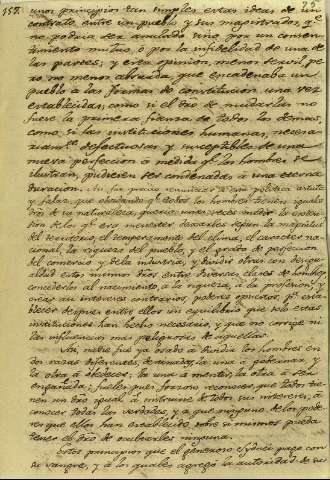 157. 79
unos principios tan simples estas ideas de un
contrato entre un pueblo y sus magistrados, qᵉ
no podria ser anulado sino por un consen-
timiento mutuo, ó por la infidelidad de una de
las partes; y esta opinion, menos servil, pe-
ro no menos absurda, que encadenaba un
pueblo á las formas de constitucion una vez
establecidas, como si el dro de mudarlas no
fuese la primera fianza de todos los demas,
como si las instituciones humanas, necesa-
riamᵗᵉ defectuosas y susceptibles de una
nueva perfeccion á medida qᵉ los hombres se
ilustran, pudiesen ser condenadas á una eterna
duracion. Asi fue preciso renunciar á esta politica astuta
y falaz, que olvidando qᵉ todos los hombres tienen iguales
dros de su naturaleza, queria unas veces medir la esten-
sion de los qᵉ era menester dexarles segun la magnitud
del territorio, el temperamento del clima, el caracter na-
cional, la riqueza del pueblo, y el grado de perfeccion
del comercio y de la industria, y dividir otras con desigu-
aldad estos mismos dros entre diversas clases de hombres,
concederlos al nacimiento, á la riqueza, á la profesion, y
crear asi intereses contrarios, poderes opuestos, pᵃ esta-
blecer despues entre ellos un equilibrio que solo estas
instituciones han hecho necesario, y que no corrige ni
las influencias mas peligrosas de aquellas.
Asi, nadie fue ya osado á dividir los hombres en
dos razas diferentes, de las cuales, la una á gobernar, y
la otra á obedecer, la una á mentir, la otra á ser
engañada; fueles pues forzoso reconocer que todos tie-
nen un dro igual á instruirse de todos sus intereses, á
conocer todas las verdades, y a que ninguno de los pode-
res que ellos han establecido sobre si mismos pueda
tener el dro de ocultarles ninguna.
Estos principios que el generoso Sydnei pagó con
su sangre, y á los quales agregó la autoridad de su